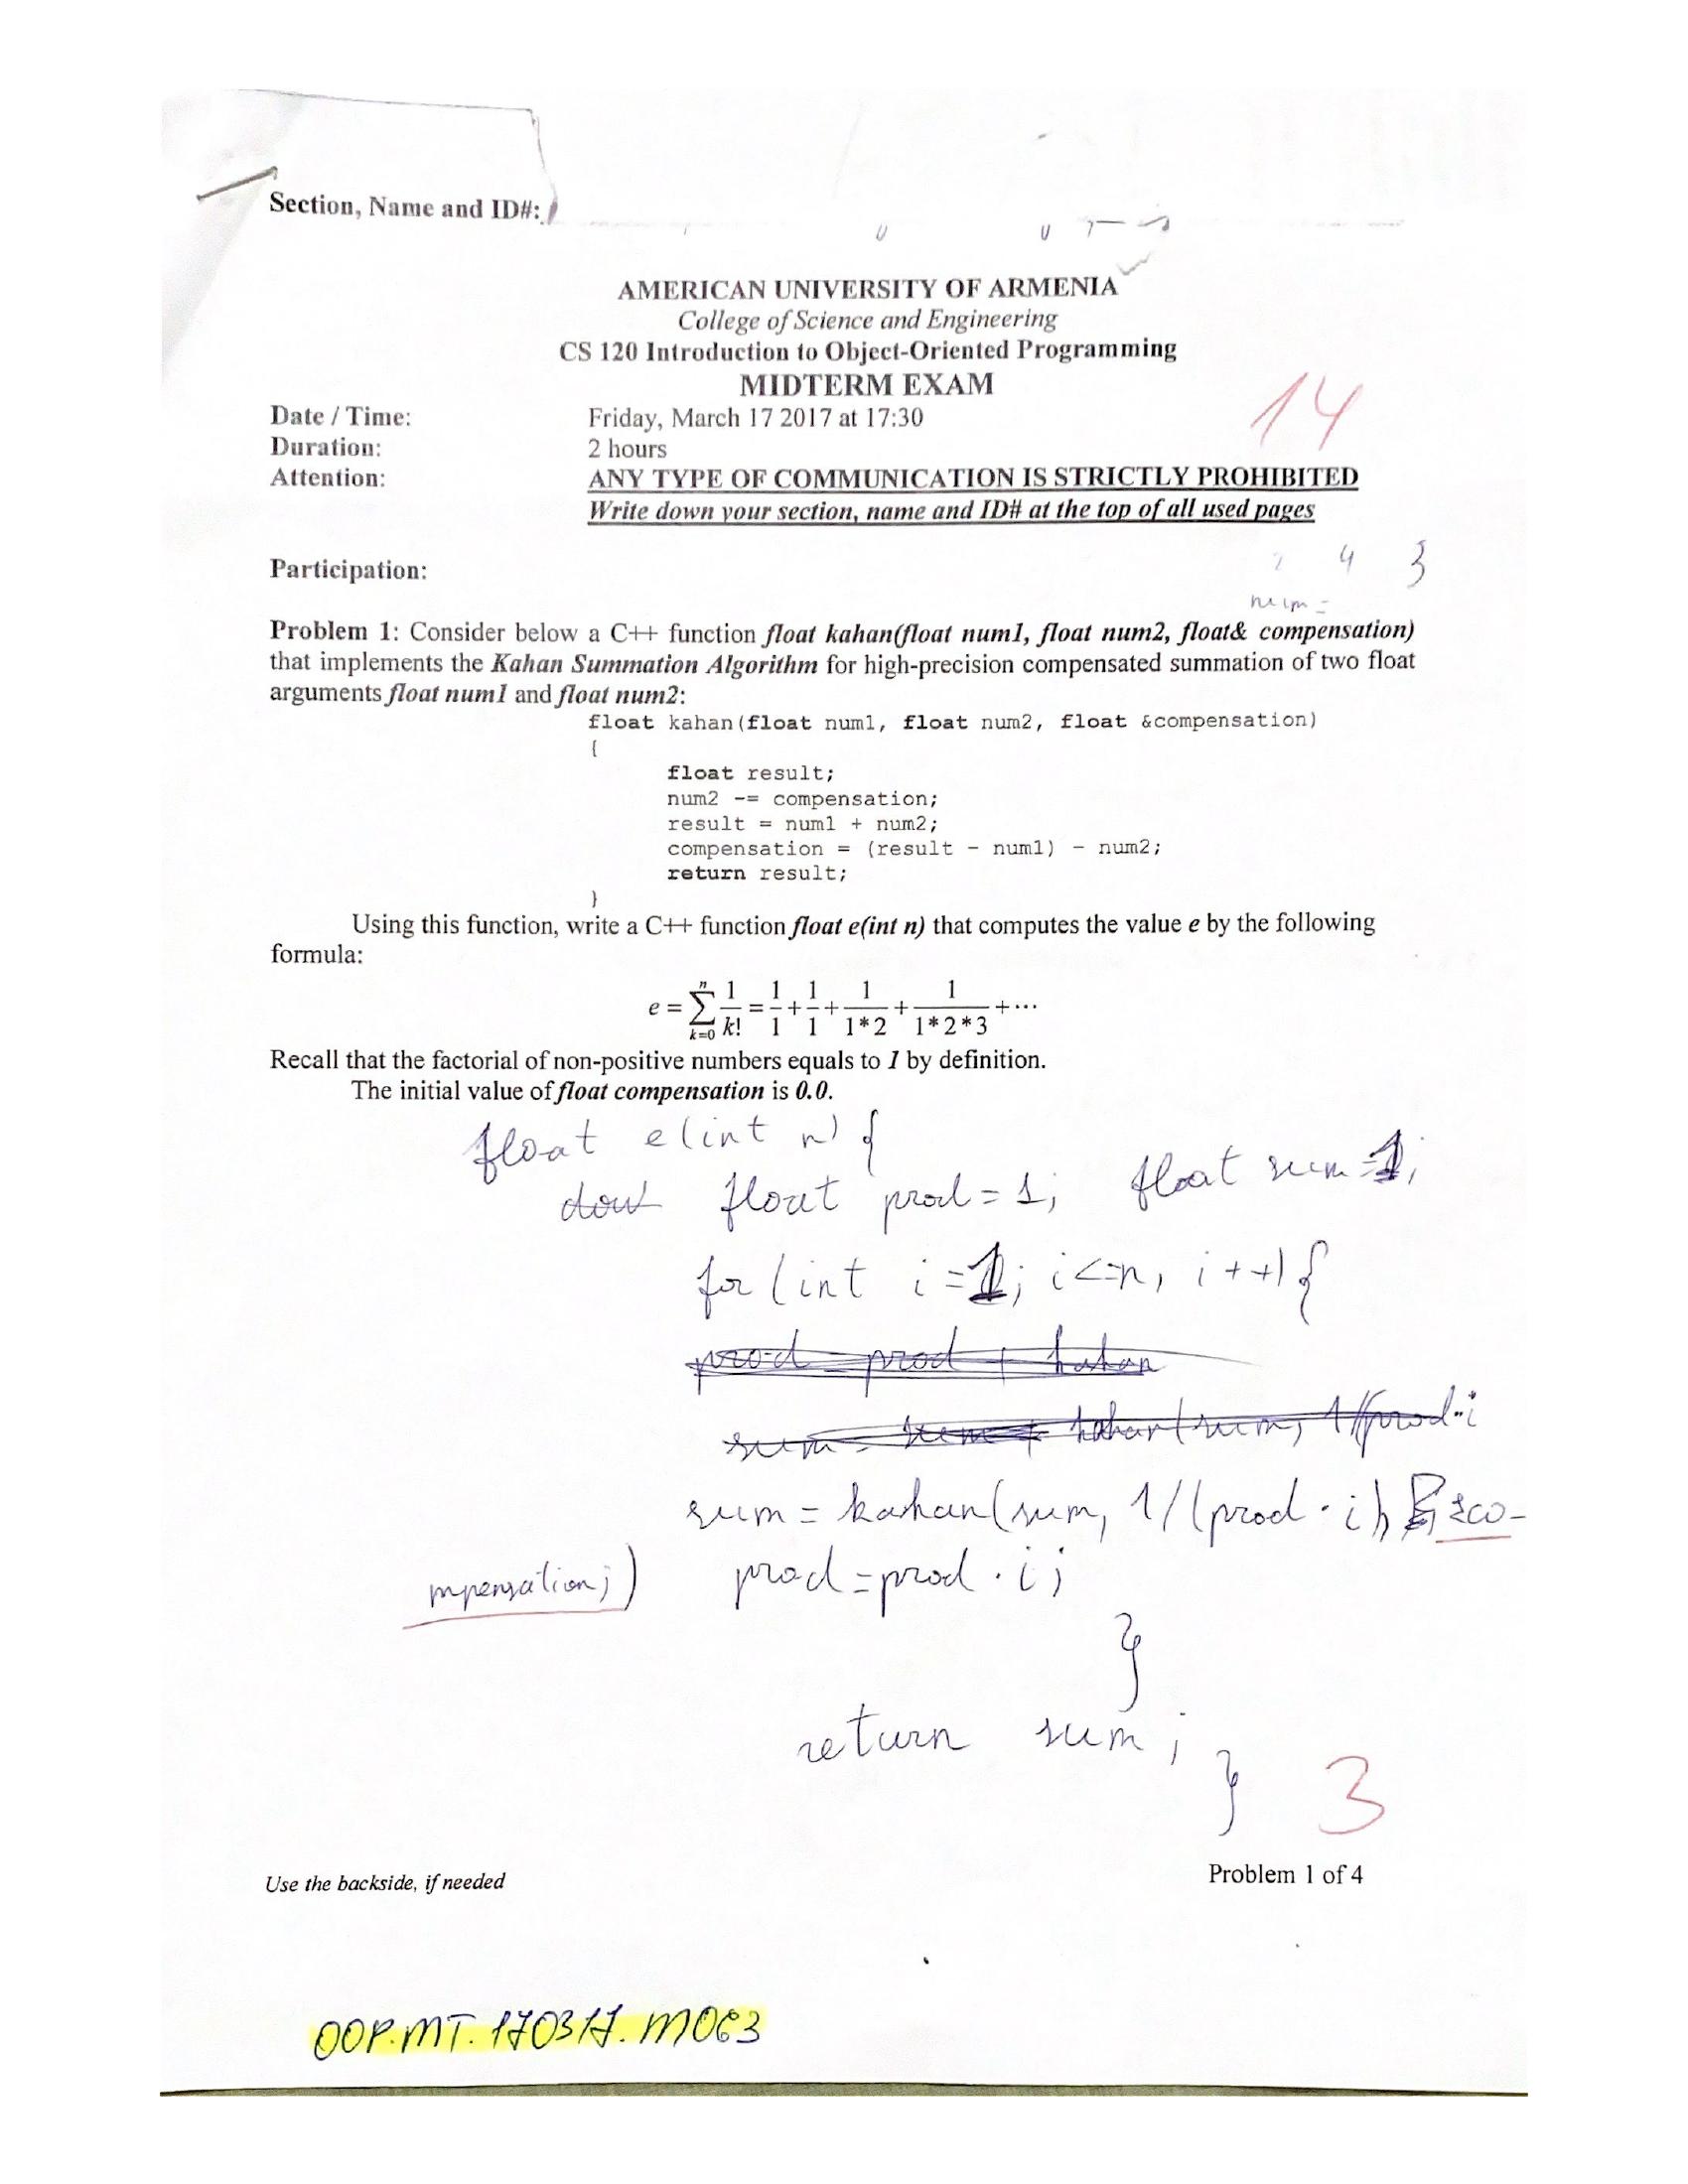 Section, Name and ID#:
AMERICAN UNIVERSITY OF ARMENIA
College of Science and Engineering
CS 120 Introduction to Object-Oriented Programming
MIDTERM EXAM
14
Date / Time: Friday, March 17 2017 at 17:30
Duration: 2 hours
Attention: ANY TYPE OF COMMUNICATION IS STRICTLY PROHIBITED
Write down your section, name and ID# at the top of all used pages
4 3
Participation:
num =
Problem 1: Consider below a C++ function float kahan(float num1, float num2, float& compensation)
that implements the Kahan Summation Algorithm for high-precision compensated summation of two float
arguments float num1 and float num2:
float kahan(float num1, float num2, float &compensation)
{
float result;
num2 -= compensation;
result = num1 + num2;
compensation = (result - num1) - num2;
return result;
}
Using this function, write a C++ function float e(int n) that computes the value e by the following
formula:
e = ∑ₖ₌₀ⁿ 1/k! = 1/1 + 1/1 + 1/1*2 + 1/1*2*3 + ···
Recall that the factorial of non-positive numbers equals to 1 by definition.
The initial value of float compensation is 0.0.
float e(int n) {
float prod = 1; float sum = 1;
for (int i = 1; i <= n, i++) {
prod = prod + kahan
sum = sum + kahan(sum, 1/(prod·i
sum = kahan(sum, 1/(prod · i), co-
mpensation;) prod = prod · i;
}
return sum;
}
3
Use the backside, if needed
Problem 1 of 4
OOP.MT.170317.M063